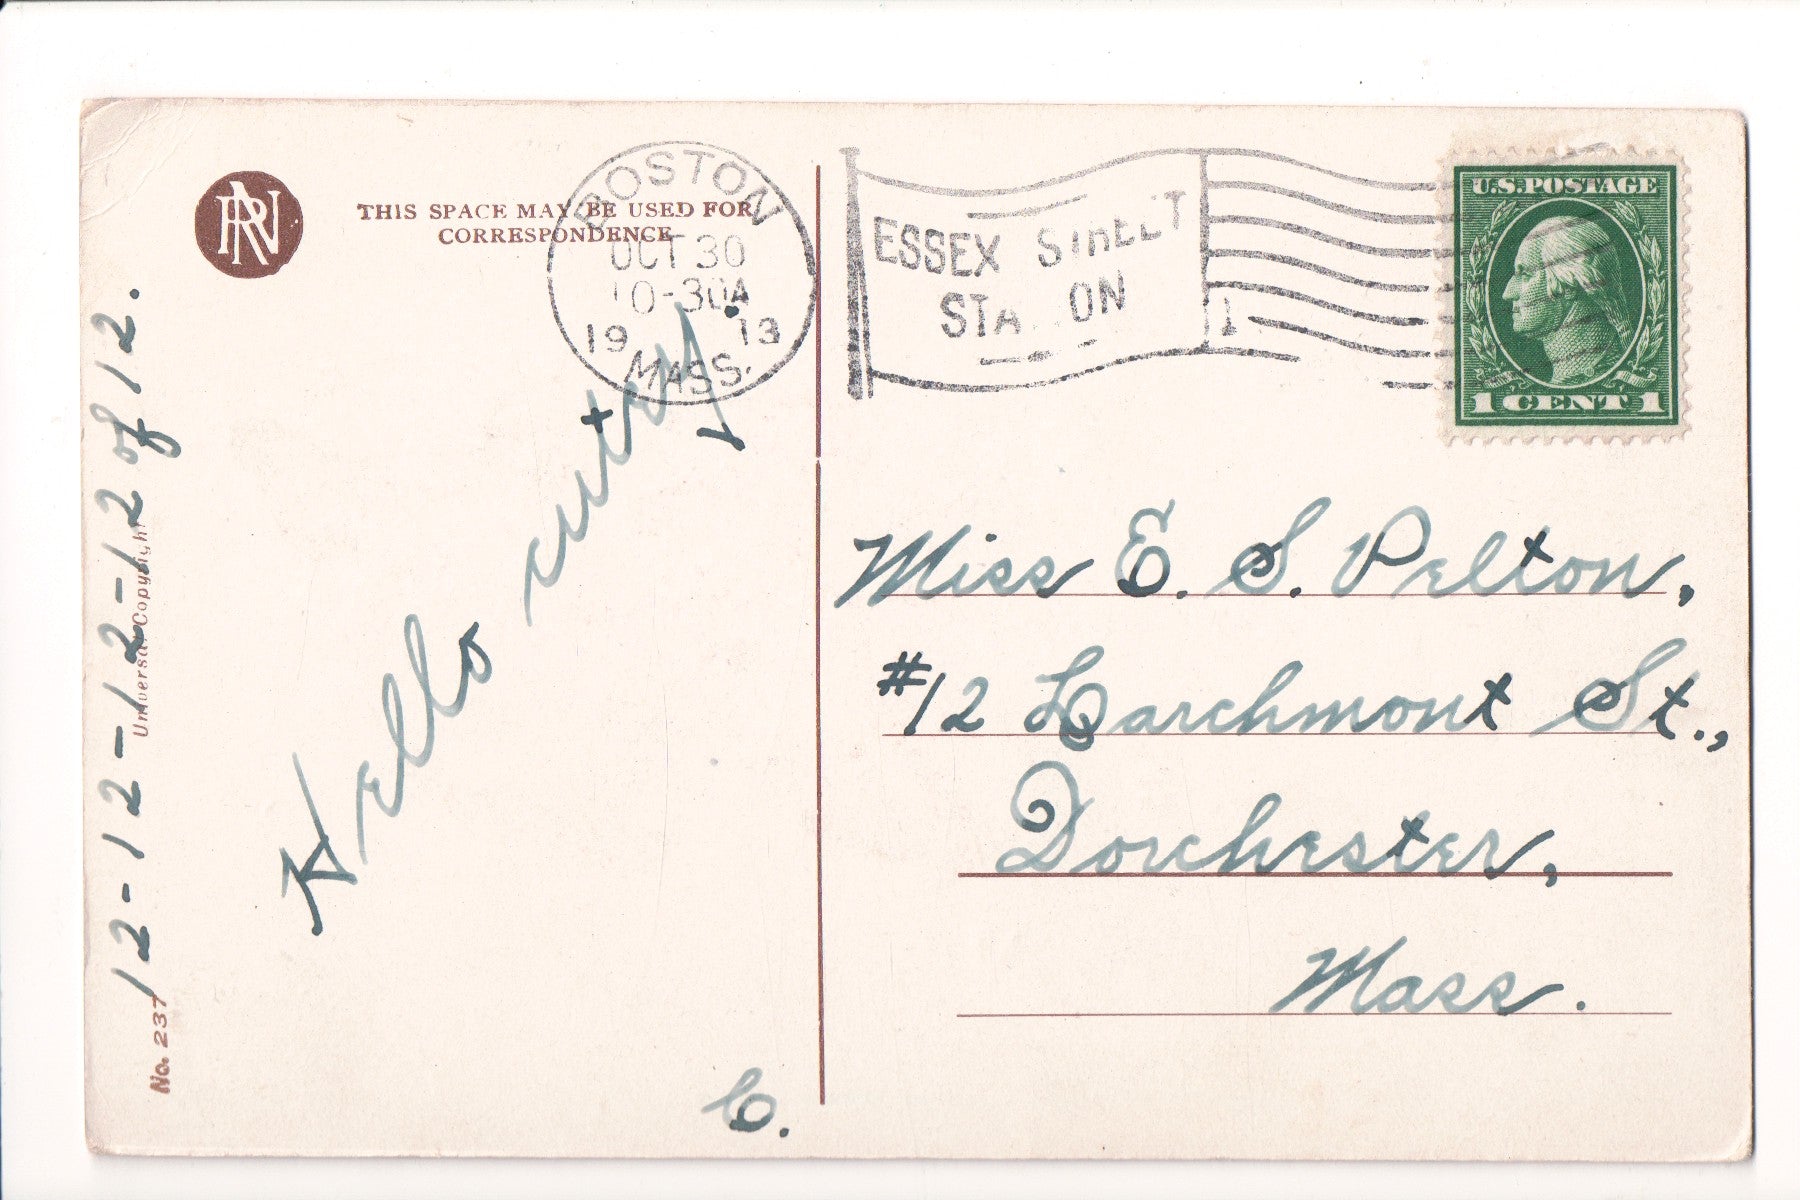 RN
THIS SPACE MAY BE USED FOR
CORRESPONDENCE
BOSTON
OCT 30
10-30A
19 13
MASS.
ESSEX STREET
STATION
1
U.S. POSTAGE
1 CENT 1
Hello cutey!
C.
12-12-12-12-12 of 12.
Universal Copyright
No. 237
Miss E. S. Pelton,
#12 Larchmont St.,
Dorchester,
Mass.